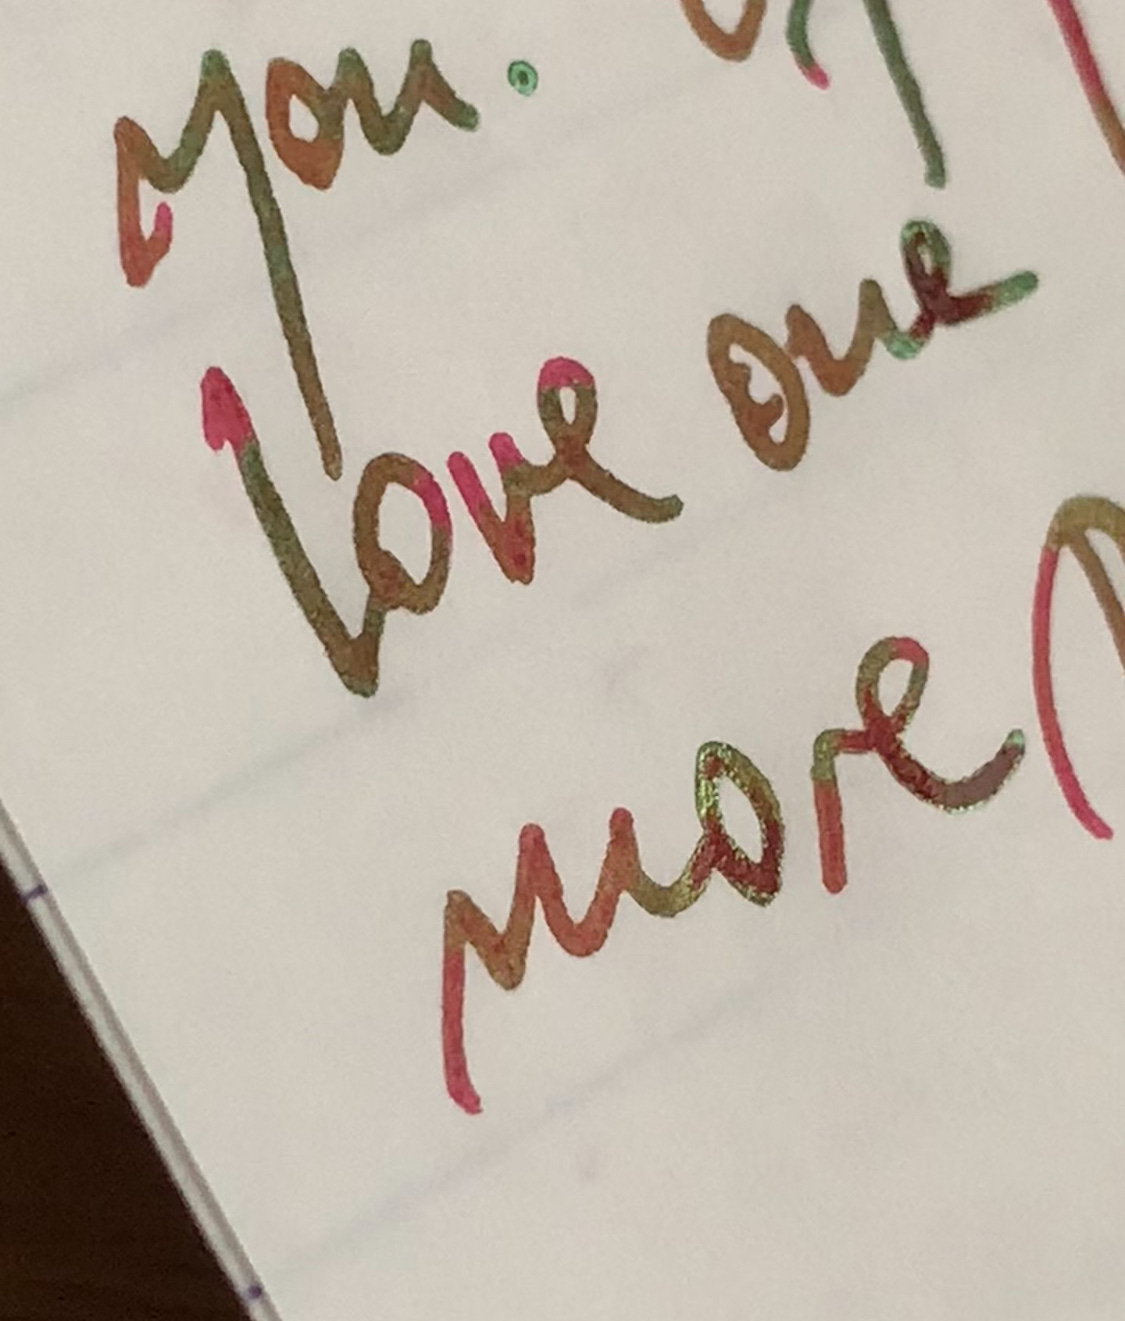 you.
love one
more